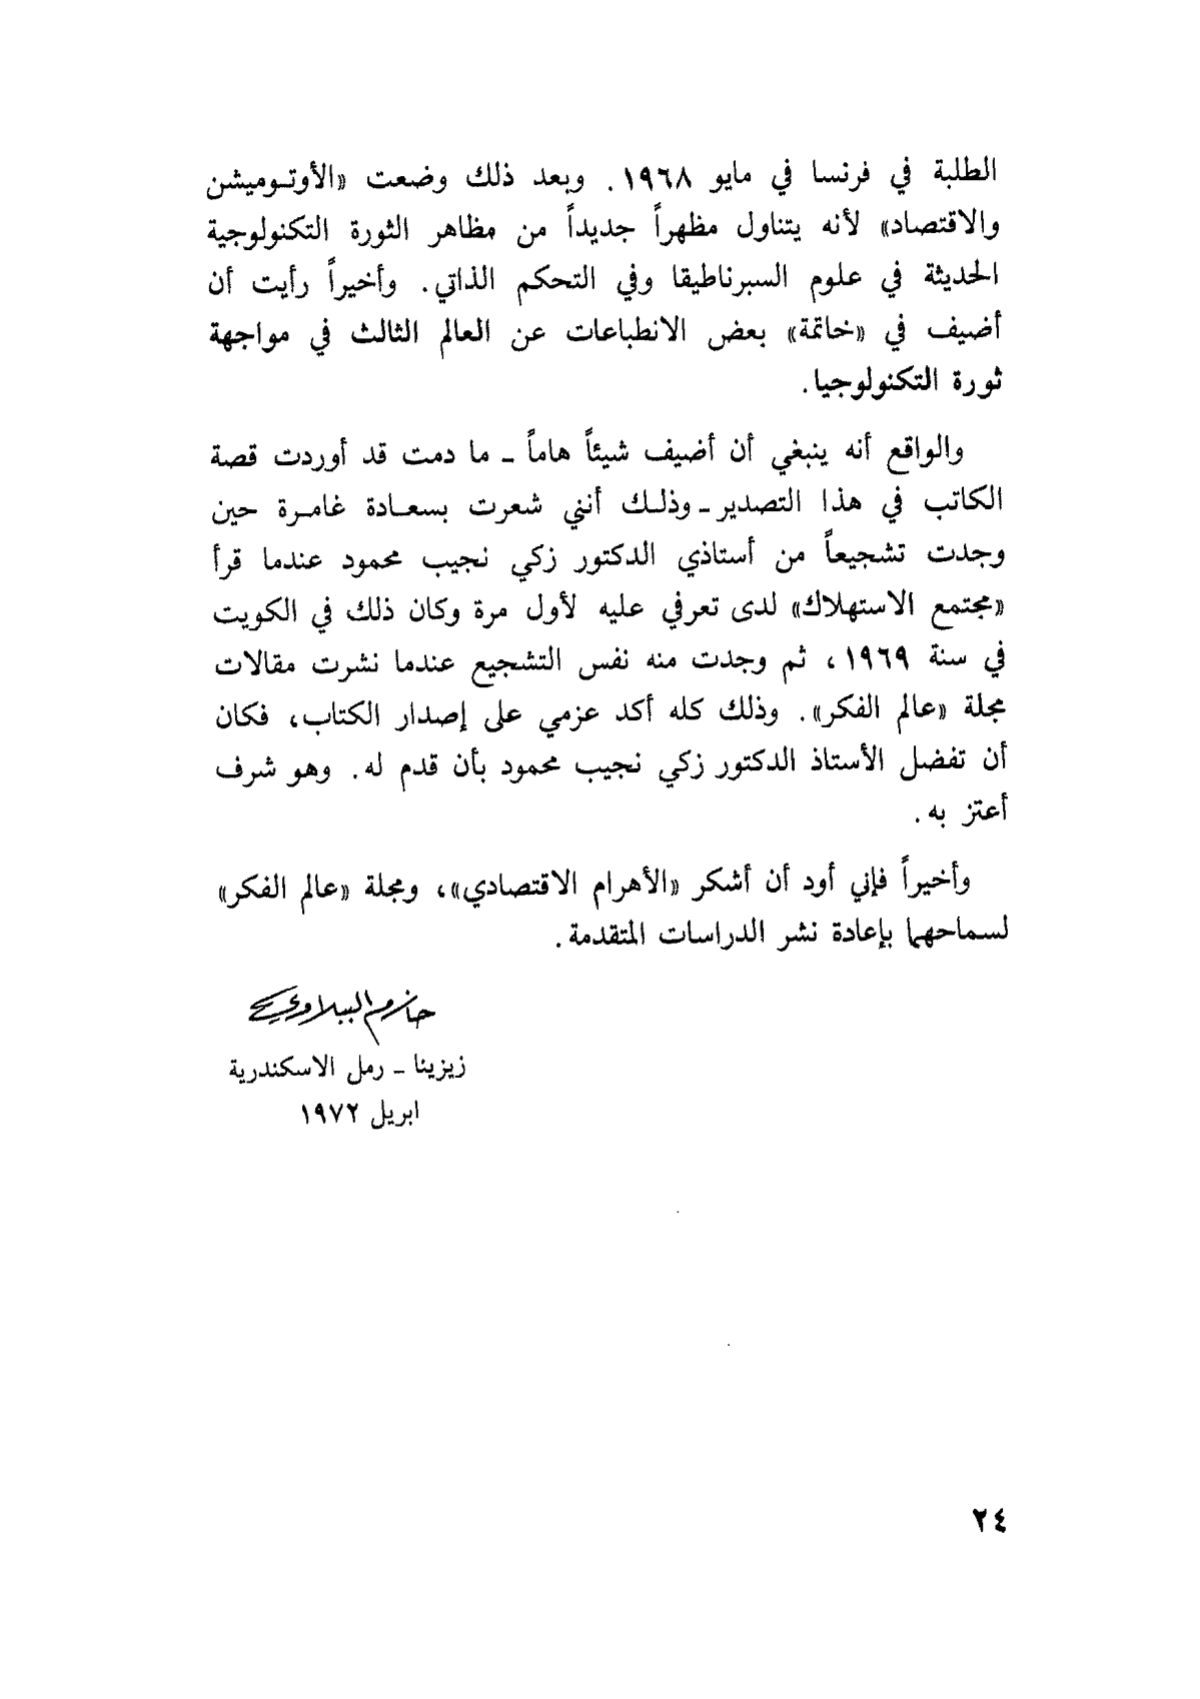 الطلبة في فرنسا في مايو ١٩٦٨. وبعد ذلك وضعت «الأوتوميشن
والاقتصاد» لأنه يتناول مظهراً جديداً من مظاهر الثورة التكنولوجية
الحديثة في علوم السبرناطيقا وفي التحكم الذاتي. وأخيراً رأيت أن
أضيف في «خاتمة» بعض الانطباعات عن العالم الثالث في مواجهة
ثورة التكنولوجيا.
والواقع أنه ينبغي أن أضيف شيئاً هاماً ـ ما دمت قد أوردت قصة
الكاتب في هذا التصدير ـ وذلك أنني شعرت بسعادة غامرة حين
وجدت تشجيعاً من أستاذي الدكتور زكي نجيب محمود عندما قرأ
«مجتمع الاستهلاك» لدى تعرفي عليه لأول مرة وكان ذلك في الكويت
في سنة ١٩٦٩، ثم وجدت منه نفس التشجيع عندما نشرت مقالات
مجلة «عالم الفكر». وذلك كله أكد عزمي على إصدار الكتاب، فكان
أن تفضل الأستاذ الدكتور زكي نجيب محمود بأن قدم له. وهو شرف
أعتز به.
وأخيراً فإني أود أن أشكر «الأهرام الاقتصادي»، ومجلة «عالم الفكر»
لسماحهما بإعادة نشر الدراسات المتقدمة.
حازم الببلاوي
زيزينا ـ رمل الاسكندرية
ابريل ١٩٧٢
٢٤